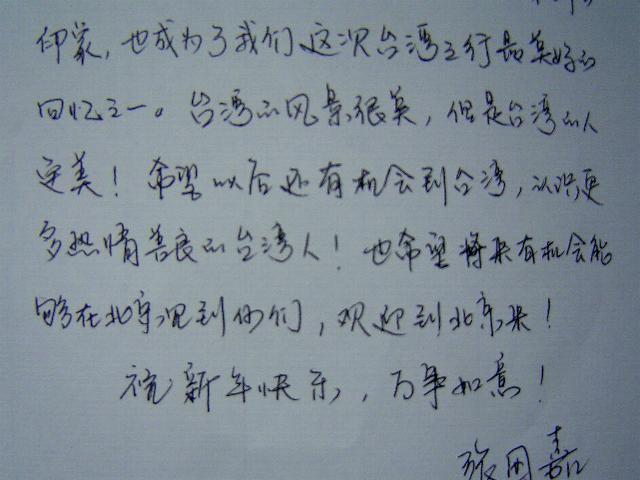 印象，也成为了我们这次台湾之行最美好的
回忆之一。台湾的风景很美，但是台湾的人
更美！希望以后还有机会到台湾，认识更
多热情善良的台湾人！也希望将来有机会能
够在北京见到你们，欢迎到北京来！
祝新年快乐，万事如意！
张国嘉